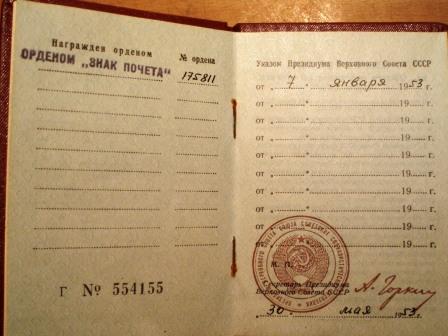 Награжден орденом
№ ордена
ОРДЕНОМ „ЗНАК ПОЧЕТА"
175811
Г № 554155
Указом Президиума Верховного Совета СССР
от „ 7 " января 1953 г.
от „ " 19 г.
от „ " 19 г.
от „ " 19 г.
от „ " 19 г.
от „ " 19 г.
от „ " 19 г.
от „ " 19 г.
от „ " 19 г.
м. п.
Секретарь Президиума
Верховного Совета СССР
А. Горкин
30 мая 1953 г.